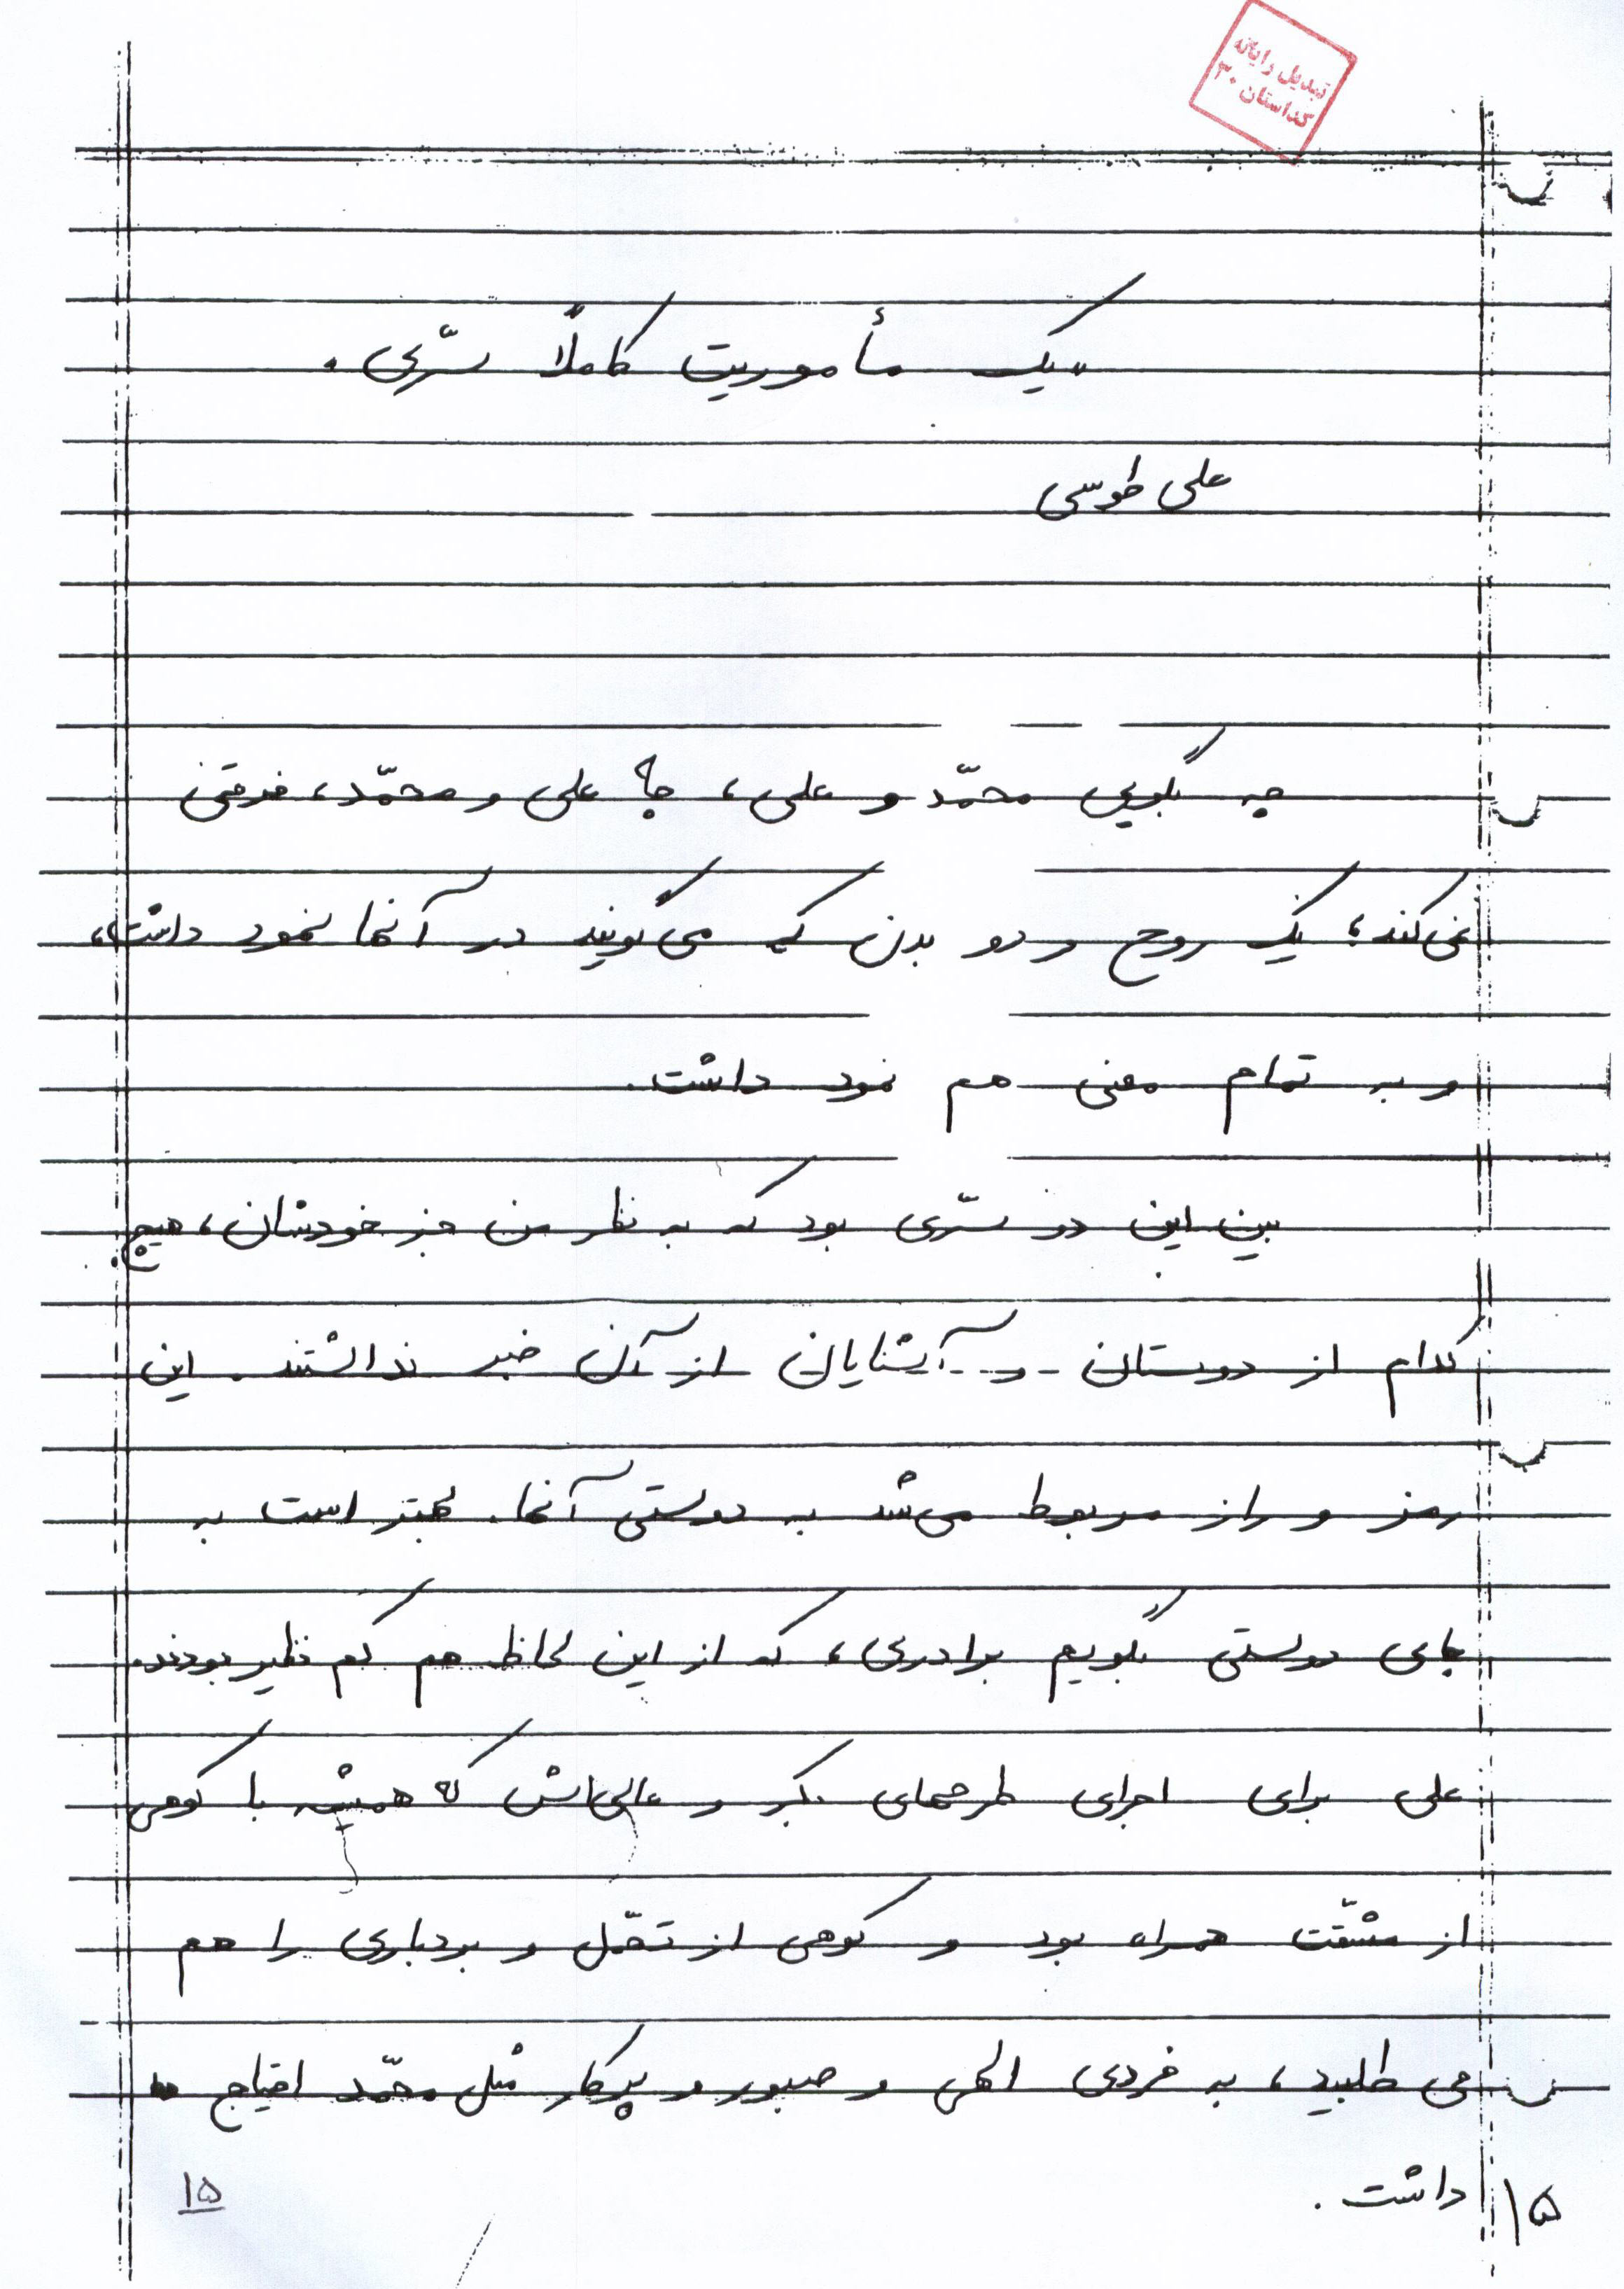 تبدیل رایانه
کداستان ۳۰
«یک مأموریت کاملاً سرّی.
علی طوسی
چه بگویی محمّد و علی، چه علی و محمّد، فرقی
نمی‌کند؛ یک روح و دو بدن که می‌گویند در آنها نمود داشت،
و به تمام معنی هم نمود داشت.
بین این دو سرّی بود که به نظر من جز خودشان، هیچ
کدام از دوستان و آشنایان از آن خبر نداشتند. این
رمز و راز مربوط می‌شد به دوستی آنها. بهتر است به
جای دوستی بگویم برادری، که از این لحاظ هم کم نظیر بودند.
علی برای اجرای طرحهای بکر و عالی‌اش که همیشه با کوهی
از مشقّت همراه بود و کوهی از تحمّل و بردباری را هم
می طلبید، به فردی الهی و صبور و پرکار مثل محمّد احتیاج
داشت.
۱۵
۱۵